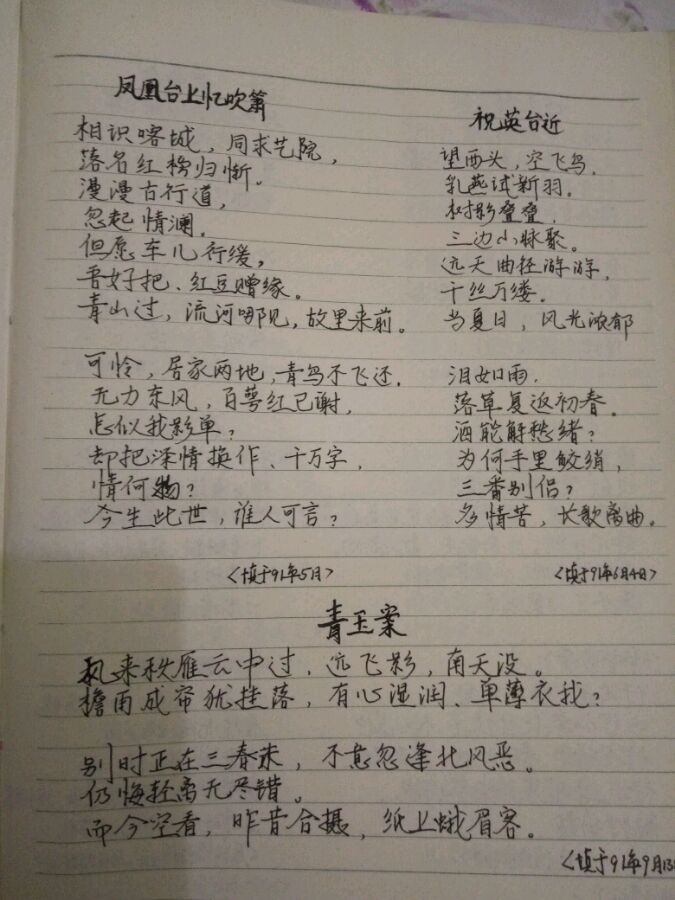 凤凰台上忆吹箫
相识喀城，同求艺院，
落名红榜归惭。
漫漫古行道，
忽起情澜。
但愿车儿行缓，
吾好把、红豆赠缘。
青山过，流河哪见，故里来前。
可怜，居家两地，青鸟不飞还。
无力东风，百萼红已谢，
怎似我影单？
却把深情换作、千万字，
情何物？
今生此世，谁人可言？
〈填于91年5月〉
祝英台近
望西头，空飞鸟，
乳燕试新羽。
树影叠叠，
三边小脉聚。
远天曲径游游，
千丝万缕。
当夏日，风光浓郁
泪如雨，
落草复返初春。
酒能解愁绪？
为何手里鲛绡，
三番别侣？
多情苦，长歌离曲。
〈填于91年6月4日〉
青玉案
风来秋雁云中过，远飞影，南天没。
檐雨成帘犹挂落，有心湿润、单薄衣我？
别时正在三春末，不意忽逢北风恶。
仍悔轻离无尽错。
而今空看，昨昔合摄，纸上蛾眉客。
〈填于91年9月13日